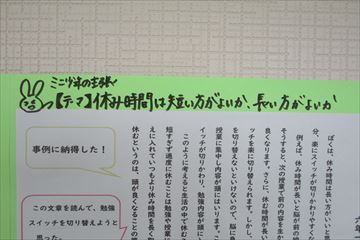 ミニ少年の主張
【テーマ】休み時間は短い方がよいか、長い方がよいか
ぼくは、休み時間は長い方がいいと思
分、楽にスイッチが切りかわりやすく
例えば、休み時間が長いと脳が前の
そうすると、次の授業で前の内容を生か
良くなります。さらに、休む時間が長
ッチを楽に切り替えられます。しかし、
を切り替えないといけないので、脳に
授業に集中し内容が頭にはいります。
このように考えると生活の中で休む
イッチが切りかわり、勉強内容が頭に
短すぎず適度に休むことは勉強や授業
えに入れていつもより休み時間を長く
休むというのは、頭が良くなることの
事例に納得した！
この文章を読んで、勉強
スイッチを切り替えようと
思った。